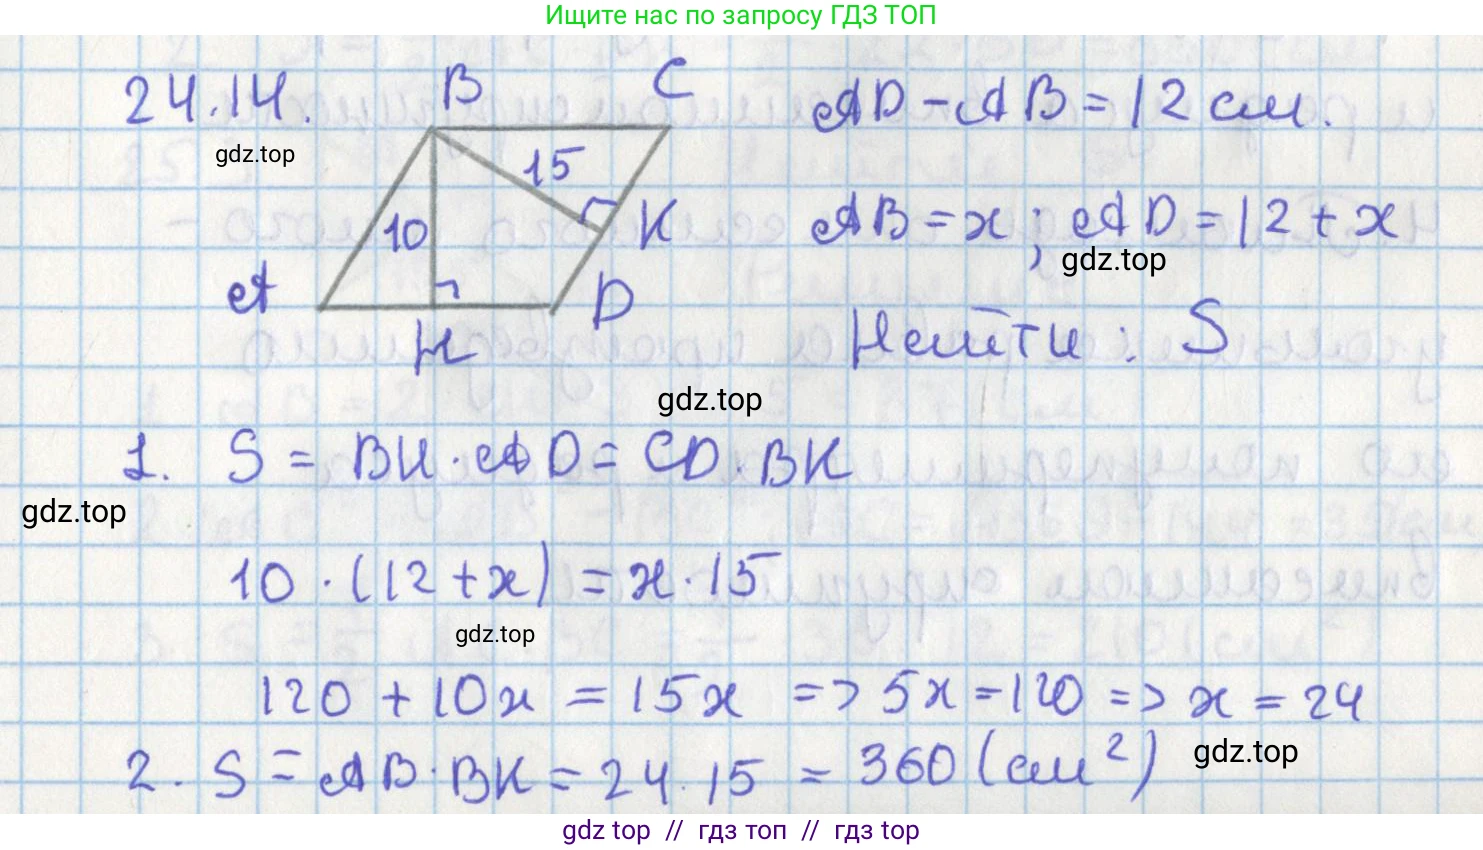 Ищите нас по запросу ГДЗ ТОП
24.14.
B
C
AD - AB = 12 см.
gdz.top
15
10
K
AB = x ; AD = 12 + x
gdz.top
A
D
H
Найти : S
gdz.top
1. S = BH · AD = CD · BK
gdz.top
10 · (12 + x) = x · 15
gdz.top
120 + 10x = 15x => 5x = 120 => x = 24
2. S = AB · BK = 24 · 15 = 360 (см²)
gdz.top
gdz top // гдз топ // гдз top